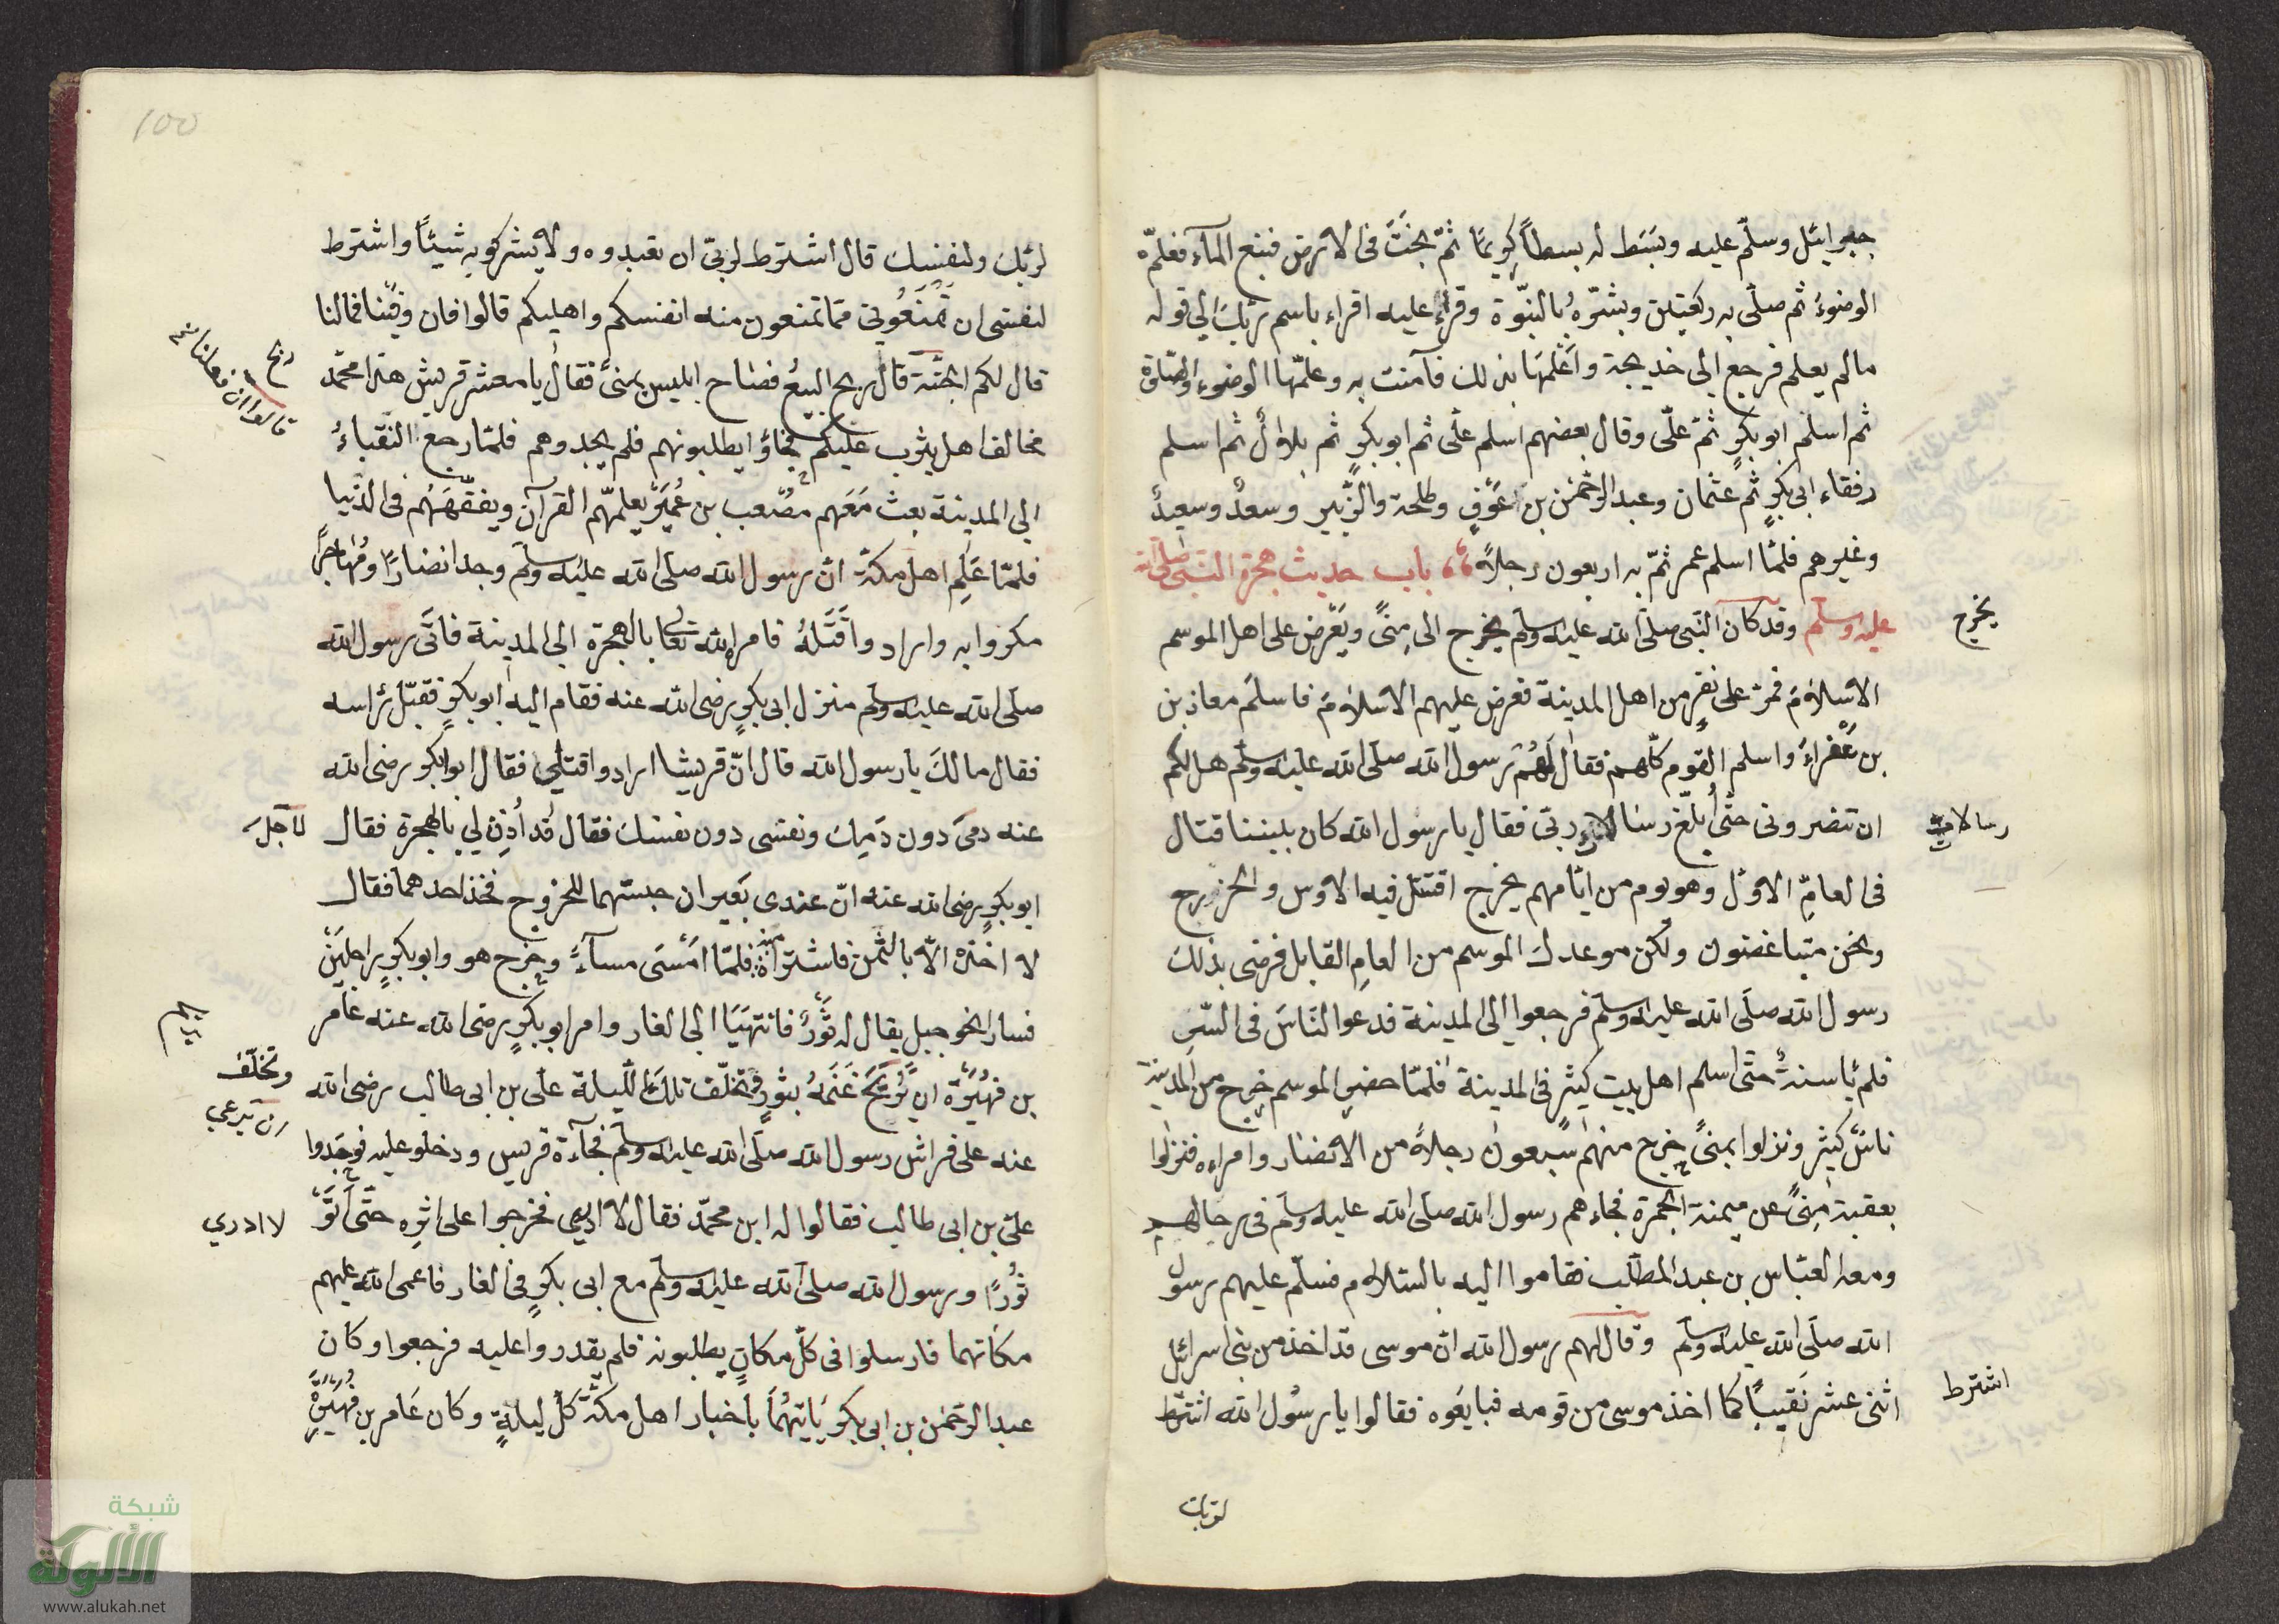 جبرائيل وسلّم عليه وبَسَط له بسطاً كريمًا ثمّ بحَثَ فى الارض فنبع المآء فعلّمه
الوضوءَ ثم صلّى به ركعتين وبشّرهُ بالنبّوة وقراء عليه اقراء باسم ربّك الي قوله
مالم يعلم فرجع الى خديجة واَعْلَمَهَا بذلك فآمنت به وعلّمها الوضوء والصّلوة
ثم اسلم ابوبكرٍ ثمّ علّى وقال بعضهم اسلم علّى ثم ابوبكرٍ ثم بلالٌ ثم اسلم
رفقاء ابى بكرٍ ثم عثمان وعبد الرحمٰن بن عَوْفٍ وطلحة والزّبير وسعدٌ وسعيدٌ
وغيرهم فلمّا اسلم عمر تمّ به اربعون رجلاً باب حديث هجرة النبّى صلّى الله
عليه وسلّم وقد كان النّبى صلّى الله عليه وسلّم يخرج الى مِنىً ويَعْرض على اهل الموسم
يخرج
الاسْلامَ فمرّ على نفرٍ من اهل المدينة فعرض عليهم الاسْلامَ فاسلم معاذ بن
بن عَفْراءَ واسلم القوم كلّهم فقال لَهُمْ رسول الله صلّى الله عليه وسلّم هل لكم
ان تنصرونى حتّى اُبلّغ رسالات ربّى فقال يا رسول الله كان بيننا قتال
رسالات
فى العامِ الاوّل وهو يوم من ايّامهم يخرج اقتتل فيه الاوس والخزرج
ونحن متباغضون ولكن موعدك الموسم من العامِ القابل فرضى بذلك
رسول الله صلّى الله عليه وسلّم فرجعوا الى المدينة فدعوا النّاسَ فى السّر
فلم يا سنةٌ حتّى اسلم اهل بيت كثير فى المدينة فلمّا حضر الموسم خرج من المدينة
ناسٌ كثير ونزلوا بمنىً خرج منهم سبعون رجلاً من الانصار وامراءه فنزلوا
بعقبة مِنىً عن ميمنة الجمرة فجاءهم رسول الله صلّى الله عليه وسلّم فى رحالهم
ومعه العبّاس بن عبد المطّلب فقاموا اليه بالسّلام فسلّم عليهم رسول
الله صلّى الله عليه وسلّم وقال لهم رسول الله انّ موسى قد اخذ من بنى اسرائل
اثنى عشر نَقيبًا كما اخذ موسى من قومه فبايعَوه فقالوا يا رسُول الله اشترط
اشترط
لربّك
100
لربّك ولنفسك قال اشترط لربّى ان تعبدوه ولا يشركو به شيئاً واشترط
لنفسى ان تَمْنَعُونى ممّا تمنعون منه انفسكم واهليكم قالوا فان وفيْنا فما لنا
قال لكم الجنّة قال ربح البيعُ فصاح ابليس بمنىً فقال يا معشر قريش هذا محمّد
ربح
قالوا ان فعلنا
مخالف اهل يثرب عليكم فجاؤا يطلبونهم فلم يجدوهم فلمّا رجع النّقباءُ
الى المدينة بعث مَعَهم مصْعب بن عُمَيْرٍ يعلّمهم القرآن ويفقّههَهُم فى الدّنيا
فلمّا عَلِم اهل مكّة انّ رسول الله صلّى الله عليه وسلّم وجد انصارًا ومُهاجرًا
مكروا به وارادوا قَتْلَهُ فامره الله تعالى بالهجرة الى المدينة فاتَى رسول الله
صلّى الله عليه وسلّم منزل ابى بكرٍ رضى الله عنه فقام اليه ابوبكرٍ فقبّل رأسه
فقال مالكَ يا رسول الله قال انّ قريشا ارادوا قتلى فقال ابوبكر رضى الله
عنه دمى دون دَمِك ونفسى دون نفسك فقال قد أُذِن لى بالهجرة فقال
ابوبكرٍ رضى الله عنه انّ عندى بَعيران حبستهما للخروج فخذ احدهما فقال
لا اخذه الّا بالثّمن فاشتراه منه فلمّا امْسَى مساءً وخرج هو وابوبكرٍ راجلَيْن
فسار انحو جبل يقال له ثَوْرٌ فانتهَيَا الى الغار وامر ابوبكرٍ رضى الله عنه عامر
بن فهُيْرَة ان يُرَيّحَ غَنَمَهُ بثورٍ وتخلّف تلك اللّيلة علّى بن ابى طالب رضى الله
وتخلّف
ان يرعي
عنه على فراش رسول الله صلّى الله عليه وسلّم فجآءة قريس ودخلو عليه فوجَدوا
علىّ بن ابى طالب فقالوا له اين محمّد فقال لا ادرى فخرجوا على اثرِه حتّى اَتَوْ
لا ادري
ثوْرًا ورسول الله صلّى الله عليه وسلّم مع ابى بكرٍ فى الغار فاعمى الله عليهم
مكانهما فارسلوا فى كلّ مكانٍ يطلبونه فلم يقدروا عليه فرجعوا وكان
عبد الرحمٰن بن ابى بكر يَاتيهُمَا باخبار اهل مكّة كلّ ليلةٍ وكان عَامر بن فهيرة
شبكة
الألوكة
www.alukah.net